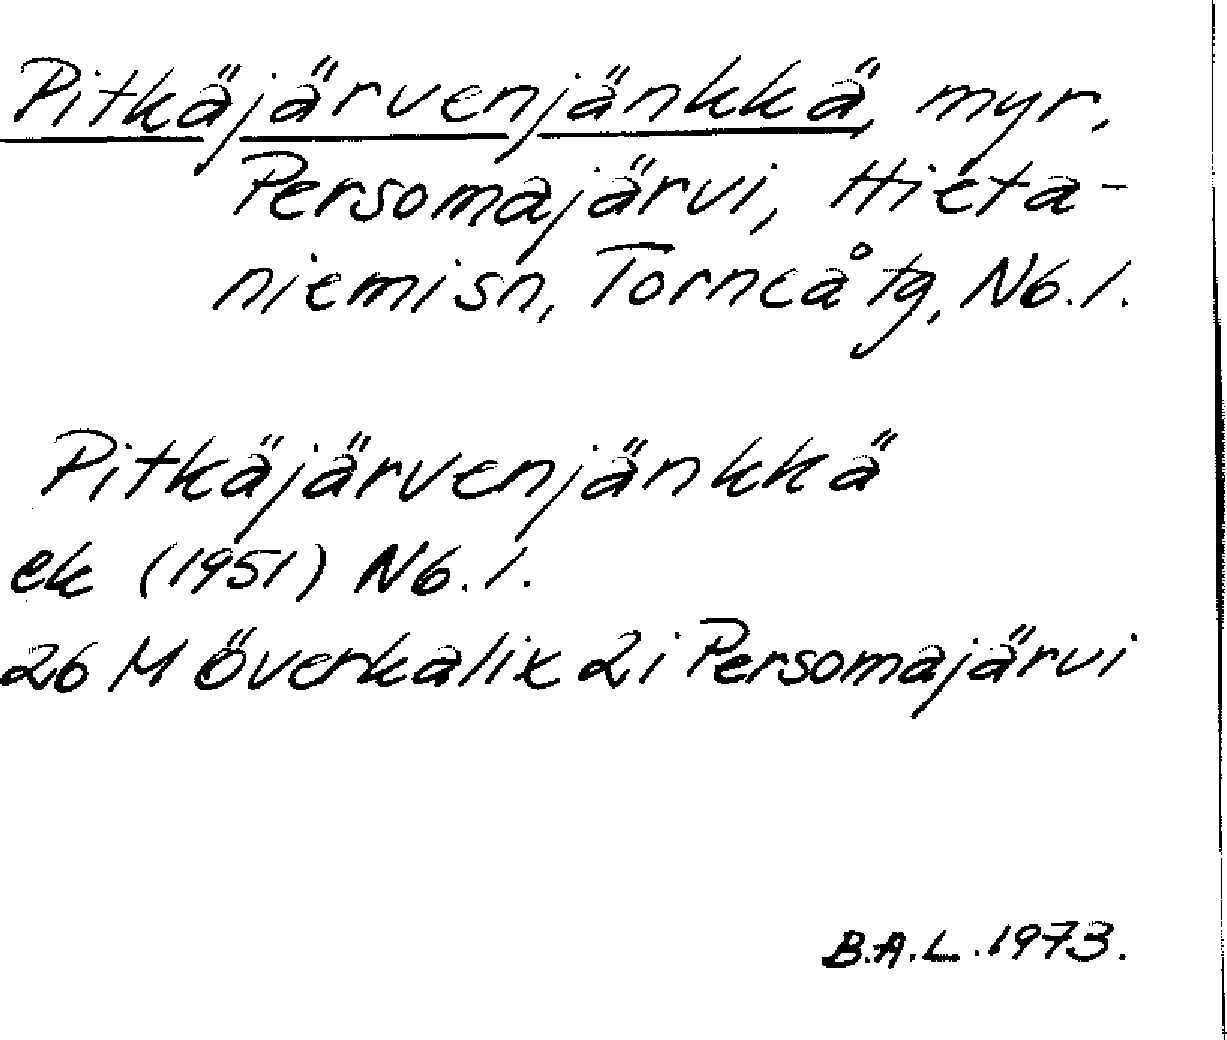 Pitkäjärvenjänkkä, myr,
Persomajärvi, Hieta-
niemi sn, Torneå tg, N6.1.
Pitkäjärvenjänkkä
ek (1951) N6.1.
26 M Överkalix 2i Persomajärvi
B.A.L. 1973.